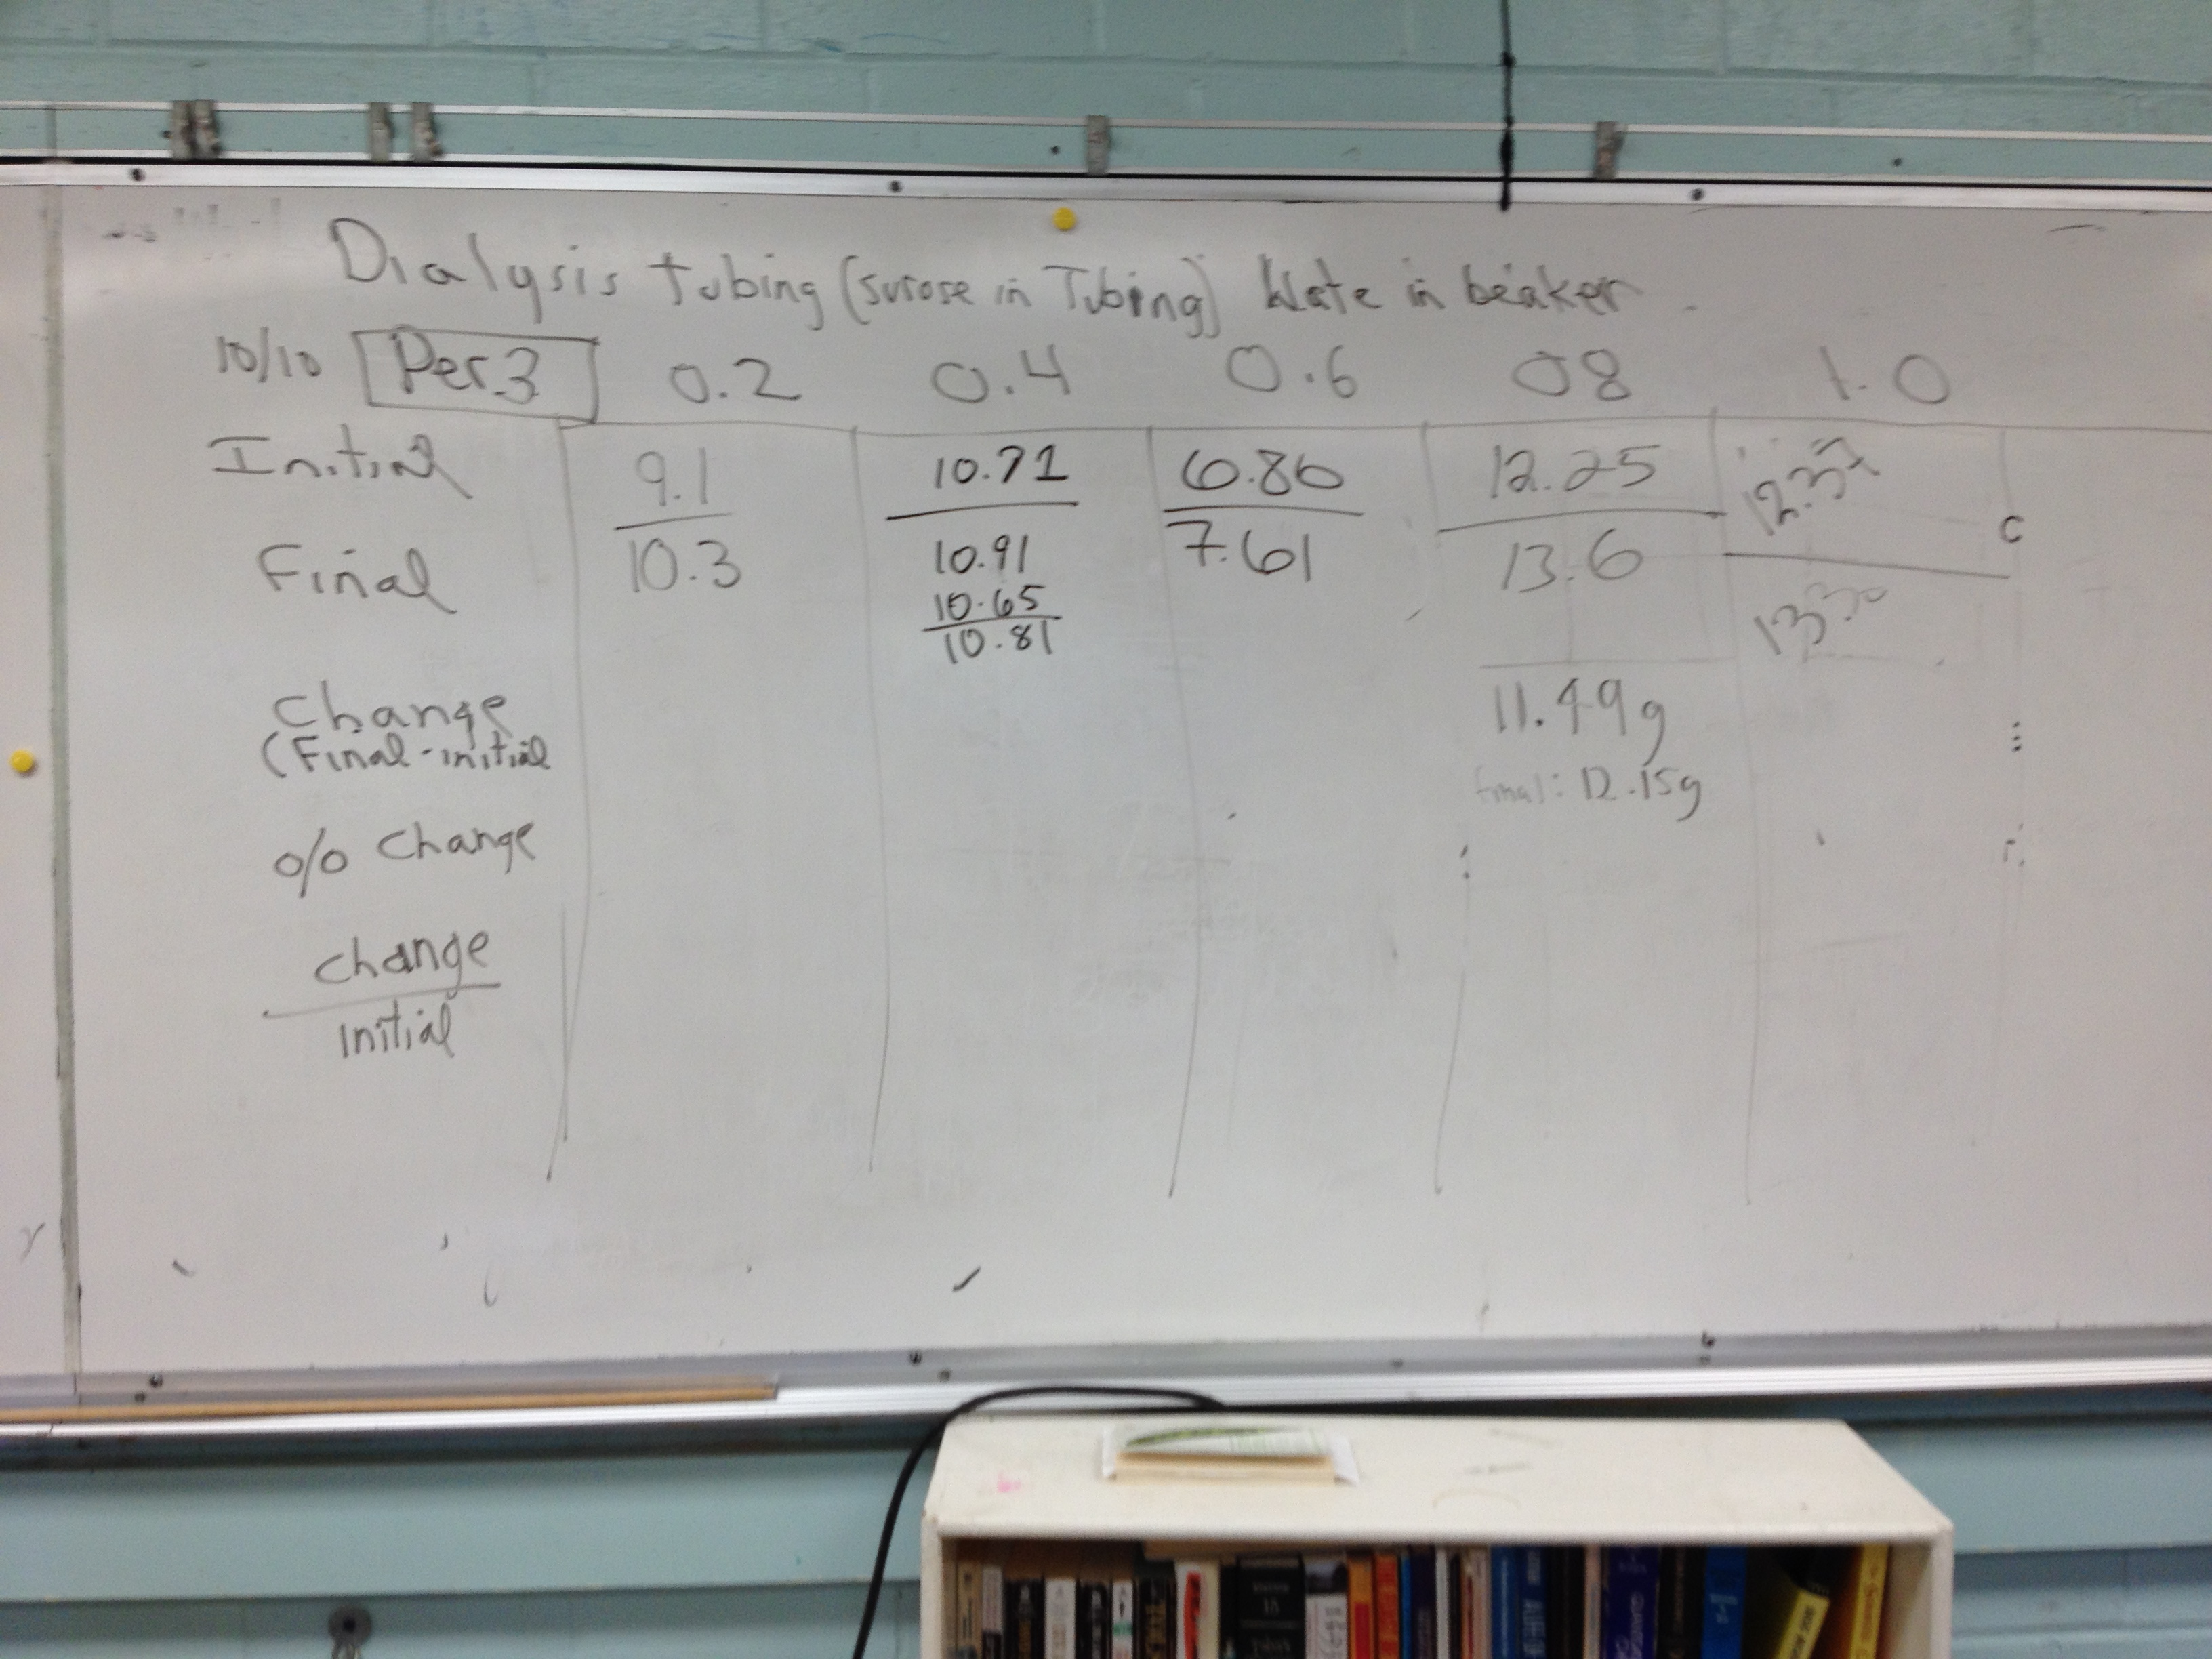 Dialysis tubing (surose in Tubing) Wate in beaker
10/10 Per.3 0.2 0.4 0.6 08 1.0
Initial 9.1 10.71 6.86 12.25
Final 10.3 10.91 7.61 13.6
10.65
10.81
Change 11.49g
(Final-initial
final: 12.15g
o/o change
change
initial